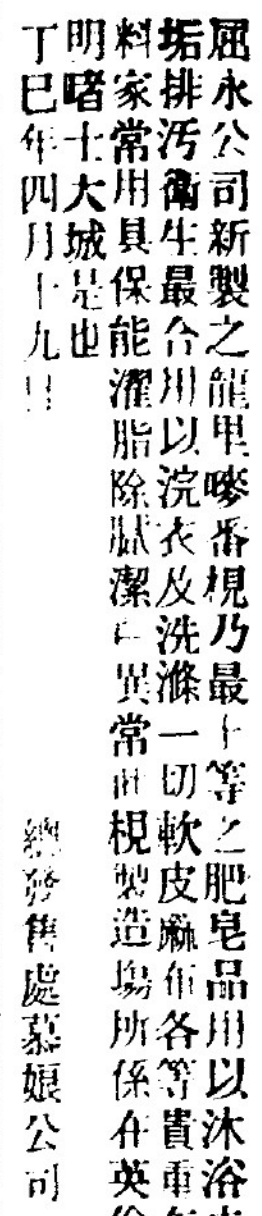 屈永公司新製之龍甲嘜番梘乃最上等之肥皂品用以沐浴
垢排汚衞生最合用以浣衣及洗滌一切軟皮麻布各等貴重
料家常用具保能濯脂除膩潔白異常此梘製造塲所係在英
明啫士大城是也
丁巳年四月十九日
總發售處慕娘公司